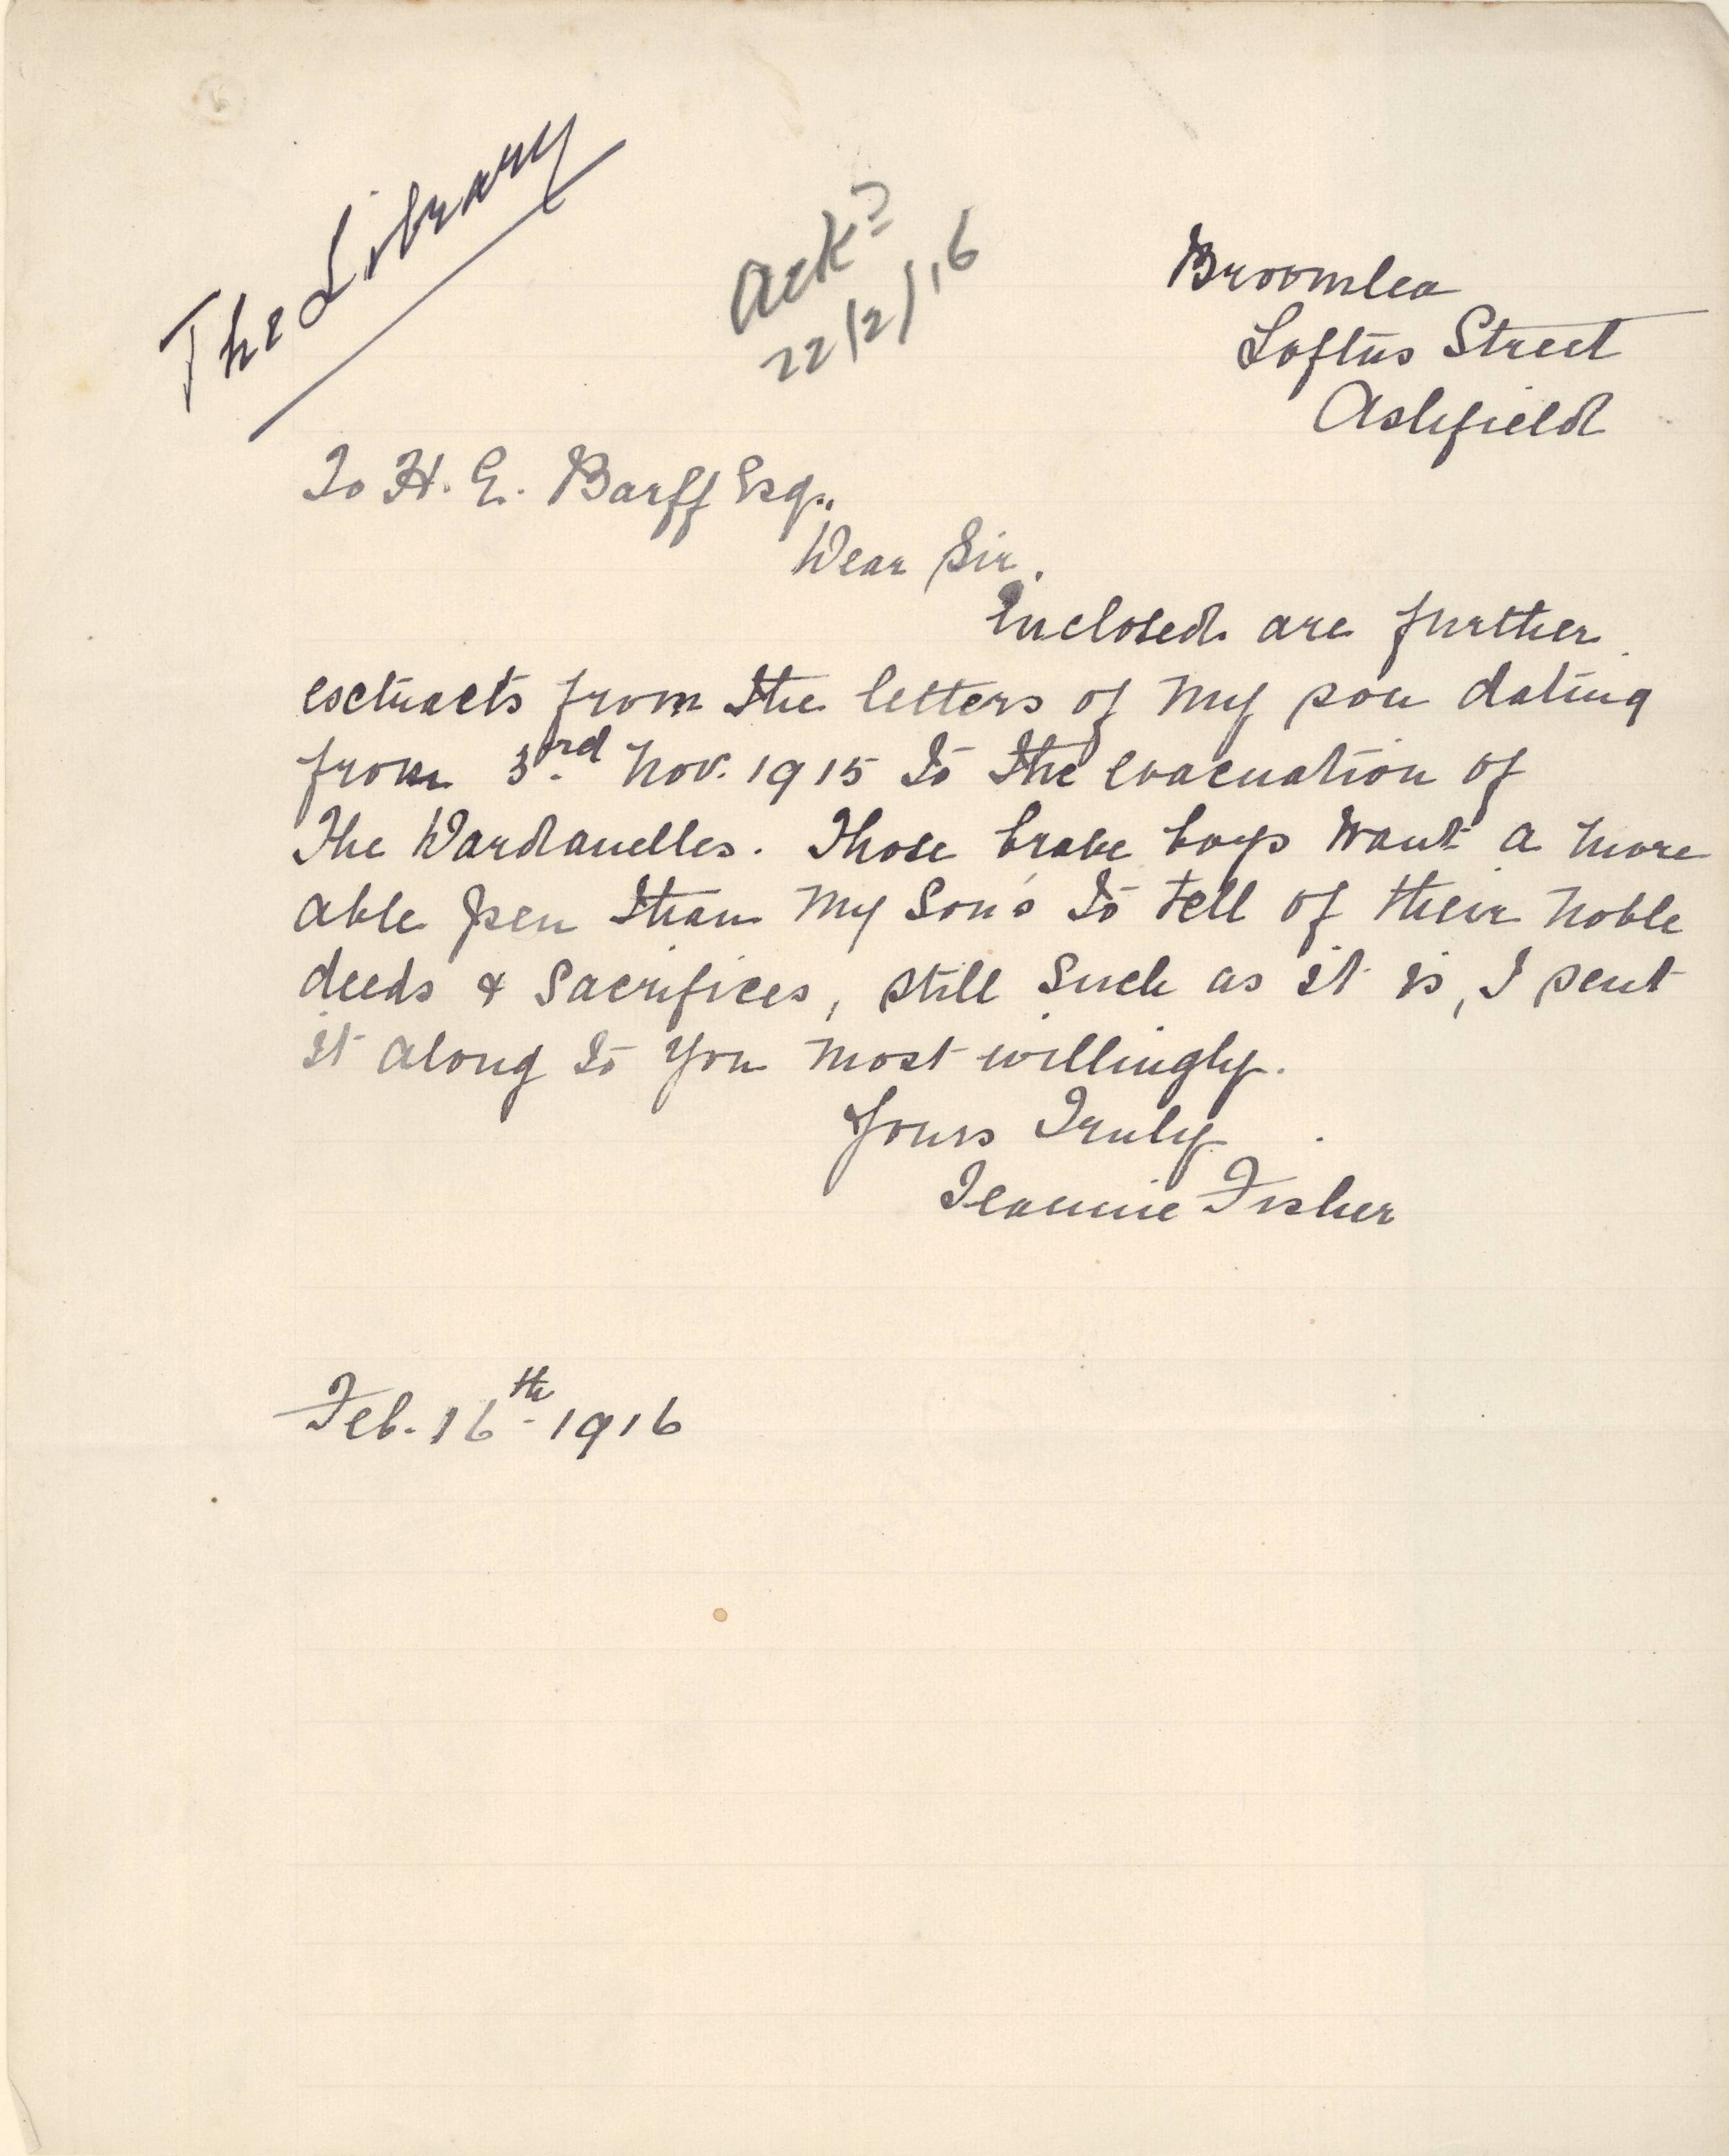 The Library
Ackd
22/2/16
Broomlea
Loftus Street
Ashfield
To H. E. Barff Esq.,
Dear Sir.
Enclosed are further
extracts from the letters of my son dating
from 3rd Nov. 1915 to the evacuation of
the Dardanelles. Those brave boys want a more
able pen than my son's to tell of their noble
deeds & sacrifices, still such as it is, I sent
it along to you most willingly.
Yours Truly
Jeannie Fisher
Feb. 16th 1916